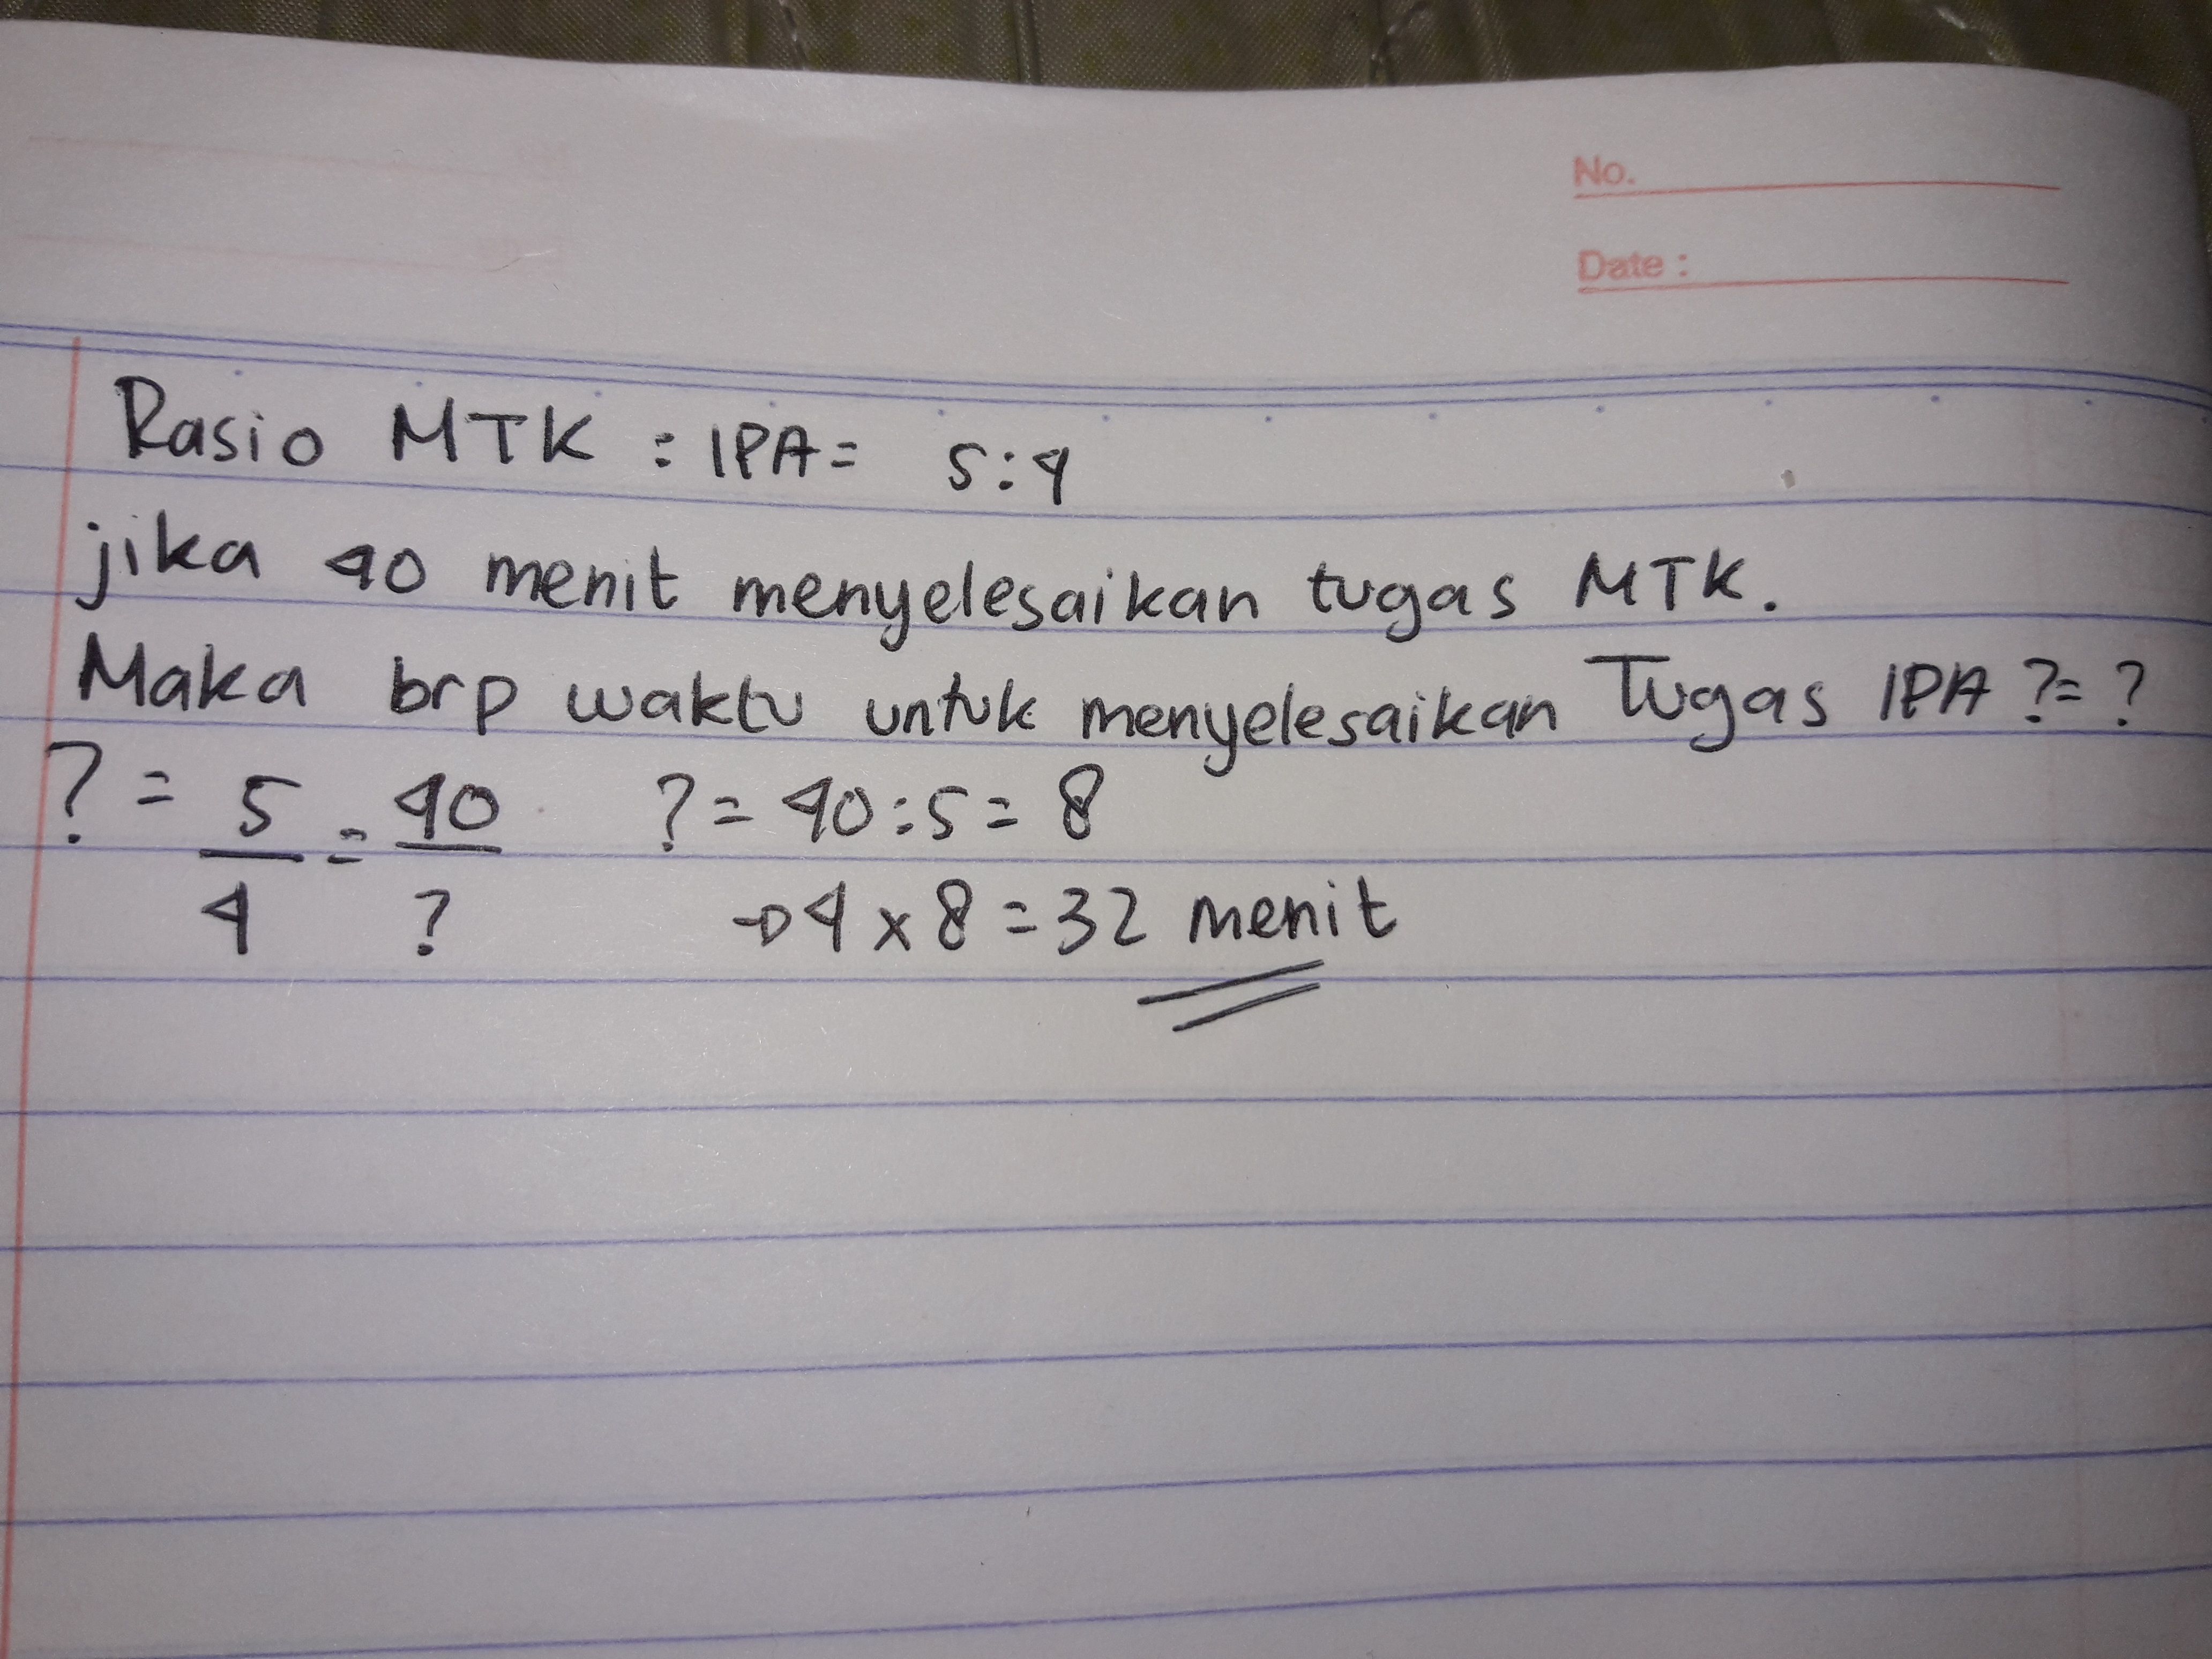 No.
Date :
Rasio MTK : IPA = 5:4
jika 40 menit menyelesaikan tugas MTK.
Maka brp waktu untuk menyelesaikan Tugas IPA ?= ?
? = 5/4 = 40/? ? = 40:5 = 8
→ 4 x 8 = 32 menit